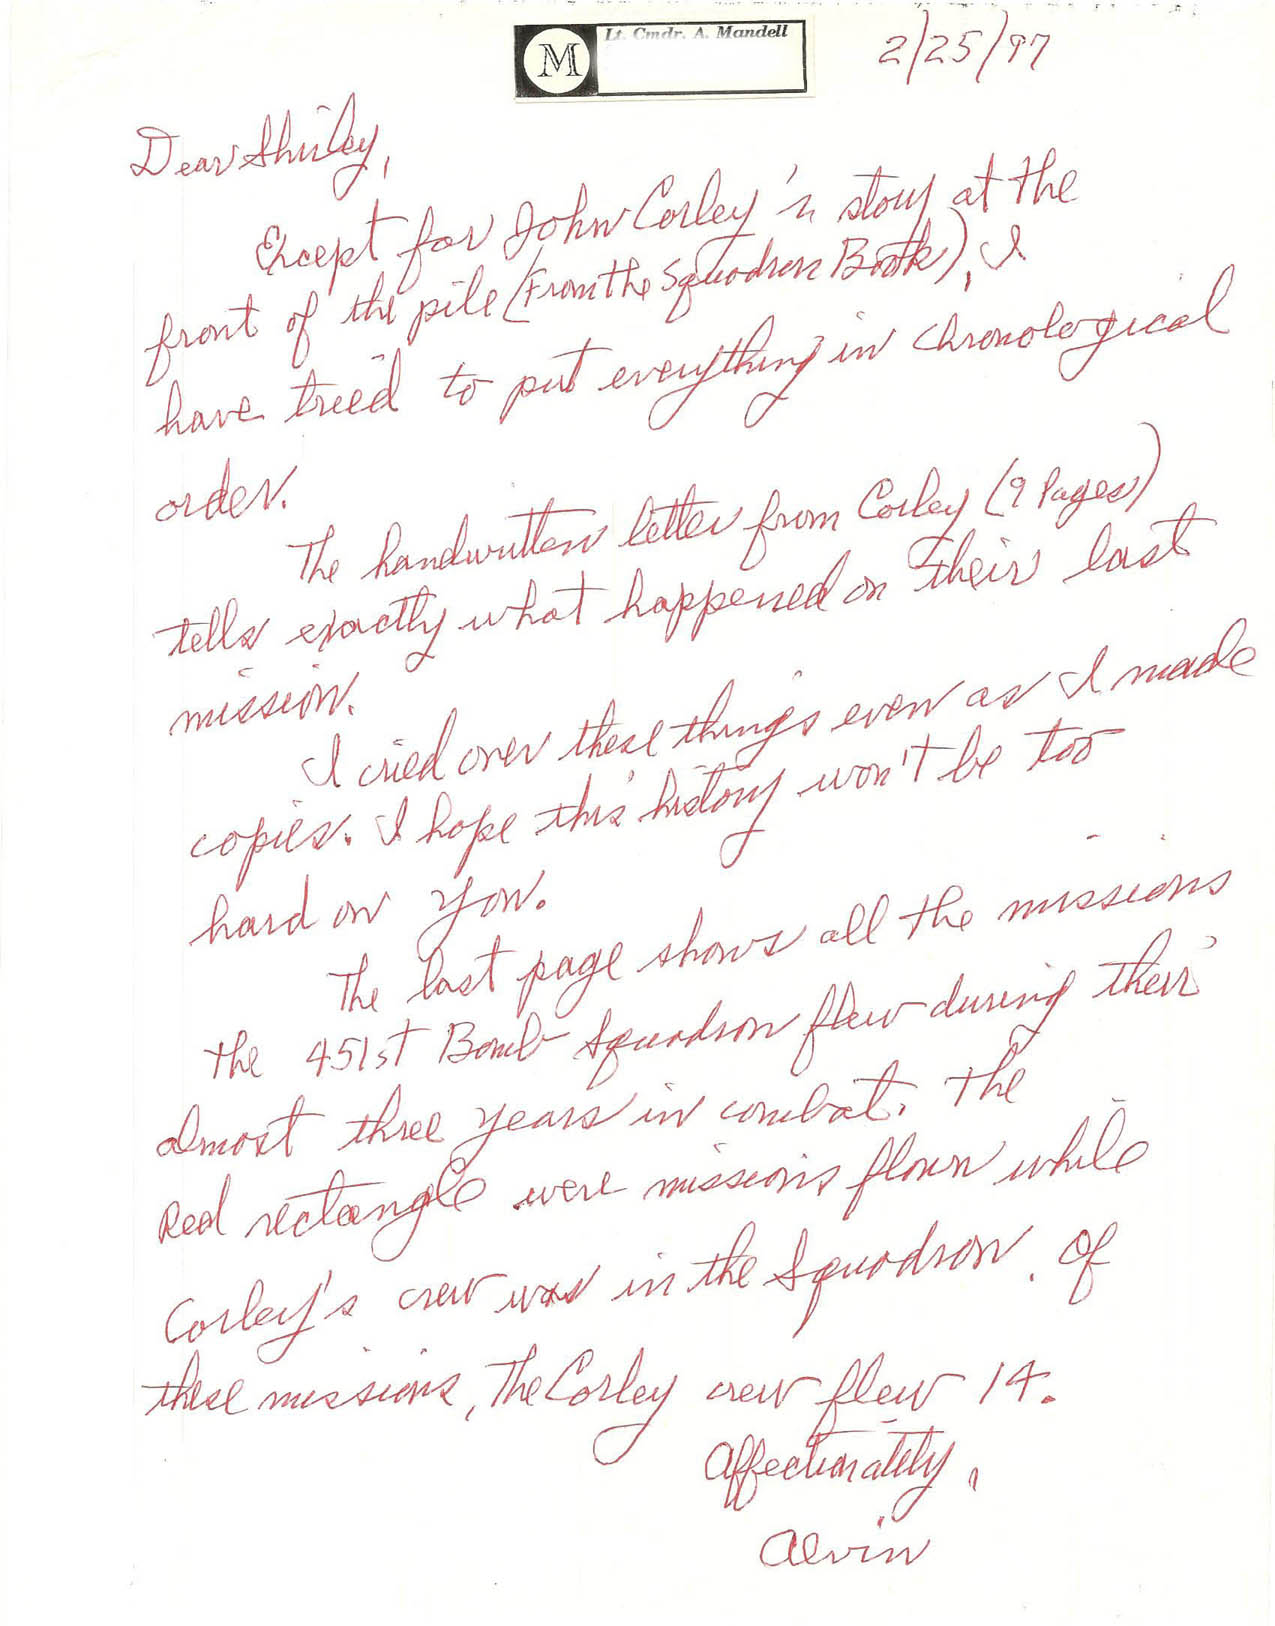 M
Lt. Cmdr. A. Mandell
2/25/97
Dear Shirley,
Except for John Corley's story at the
front of the pile (From the Squadron Book), I
have tried to put everything in chronological
order.
The handwritten letter from Corley (9 Pages)
tells exactly what happened on their last
mission.
I cried over these things even as I made
copies. I hope this history won't be too
hard on you.
The last page shows all the missions
the 451st Bomb Squadron flew during their
almost three years in combat. The
Red rectangle were missions flown while
Corley's crew was in the Squadron. Of
these missions, The Corley crew flew 14.
Affectionately,
Alvin